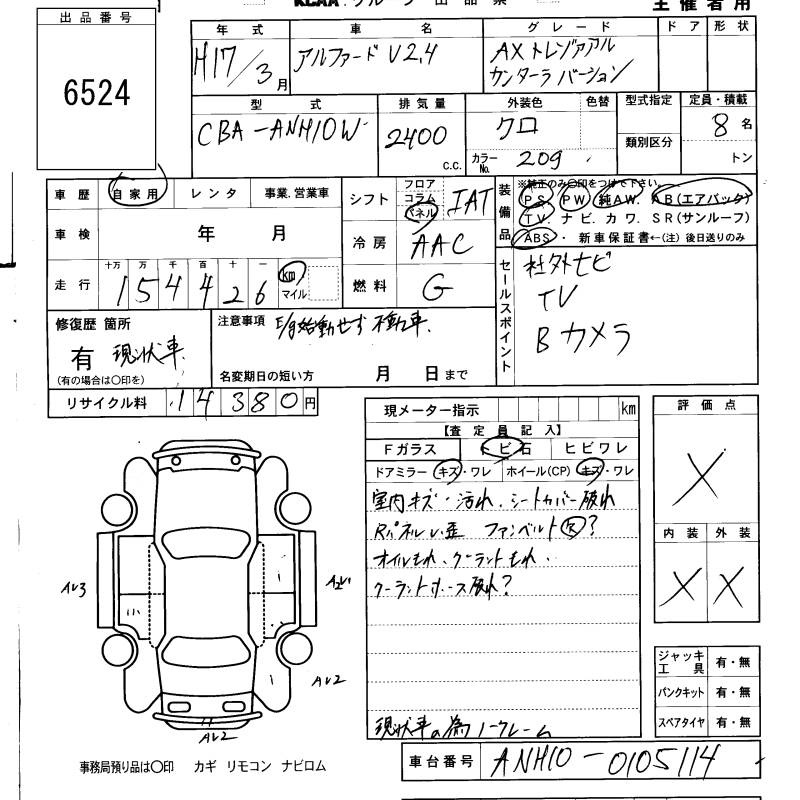 主催者用
出品番号
6524
年式 車名 グレード ドア 形状
H17/3月 アルファード V2.4 AX トレゾァアル
カンターラ バージョン
型式 排気量 外装色 色替 型式指定 定員・積載
CBA-ANH10W 2400 c.c. クロ 類別区分 8名
カラーNo. 209 トン
車歴 自家用 レンタ 事業.営業車 シフト フロア コラム パネル IAT
装備品 ※純正のみ○印をつけて下さい。
PS PW 純AW. AB(エアバッグ)
TV. ナビ. カワ. SR(サンルーフ)
ABS・ 新車保証書←(注) 後日送りのみ
車検 年 月 冷房 AAC
走行 十万 万 千 百 十 一 km マイル
154426 燃料 G
セールスポイント 社外ナビ
TV
Bカメラ
修復歴 箇所 注意事項 E/g始動せず 不動車.
有 現状車.
(有の場合は○印を) 名変期日の短い方 月 日まで
リサイクル料 14380円
現メーター指示 km
【査定員記入】
Fガラス トビ石 ヒビワレ
ドアミラー キズ・ワレ ホイール(CP) キズ・ワレ
室内キズ・汚れ、シートカバー破れ
Rパネルい歪 ファンベルト欠?
オイルもれ、クーラントもれ、
クーラントホース破れ?
現状車の為ノークレーム
評価点
X
内装 外装
X X
AU3
AU2
AU2
ジャッキ工具 有・無
パンクキット 有・無
スペアタイヤ 有・無
事務局預り品は○印 カギ リモコン ナビロム
車台番号 ANH10-0105114